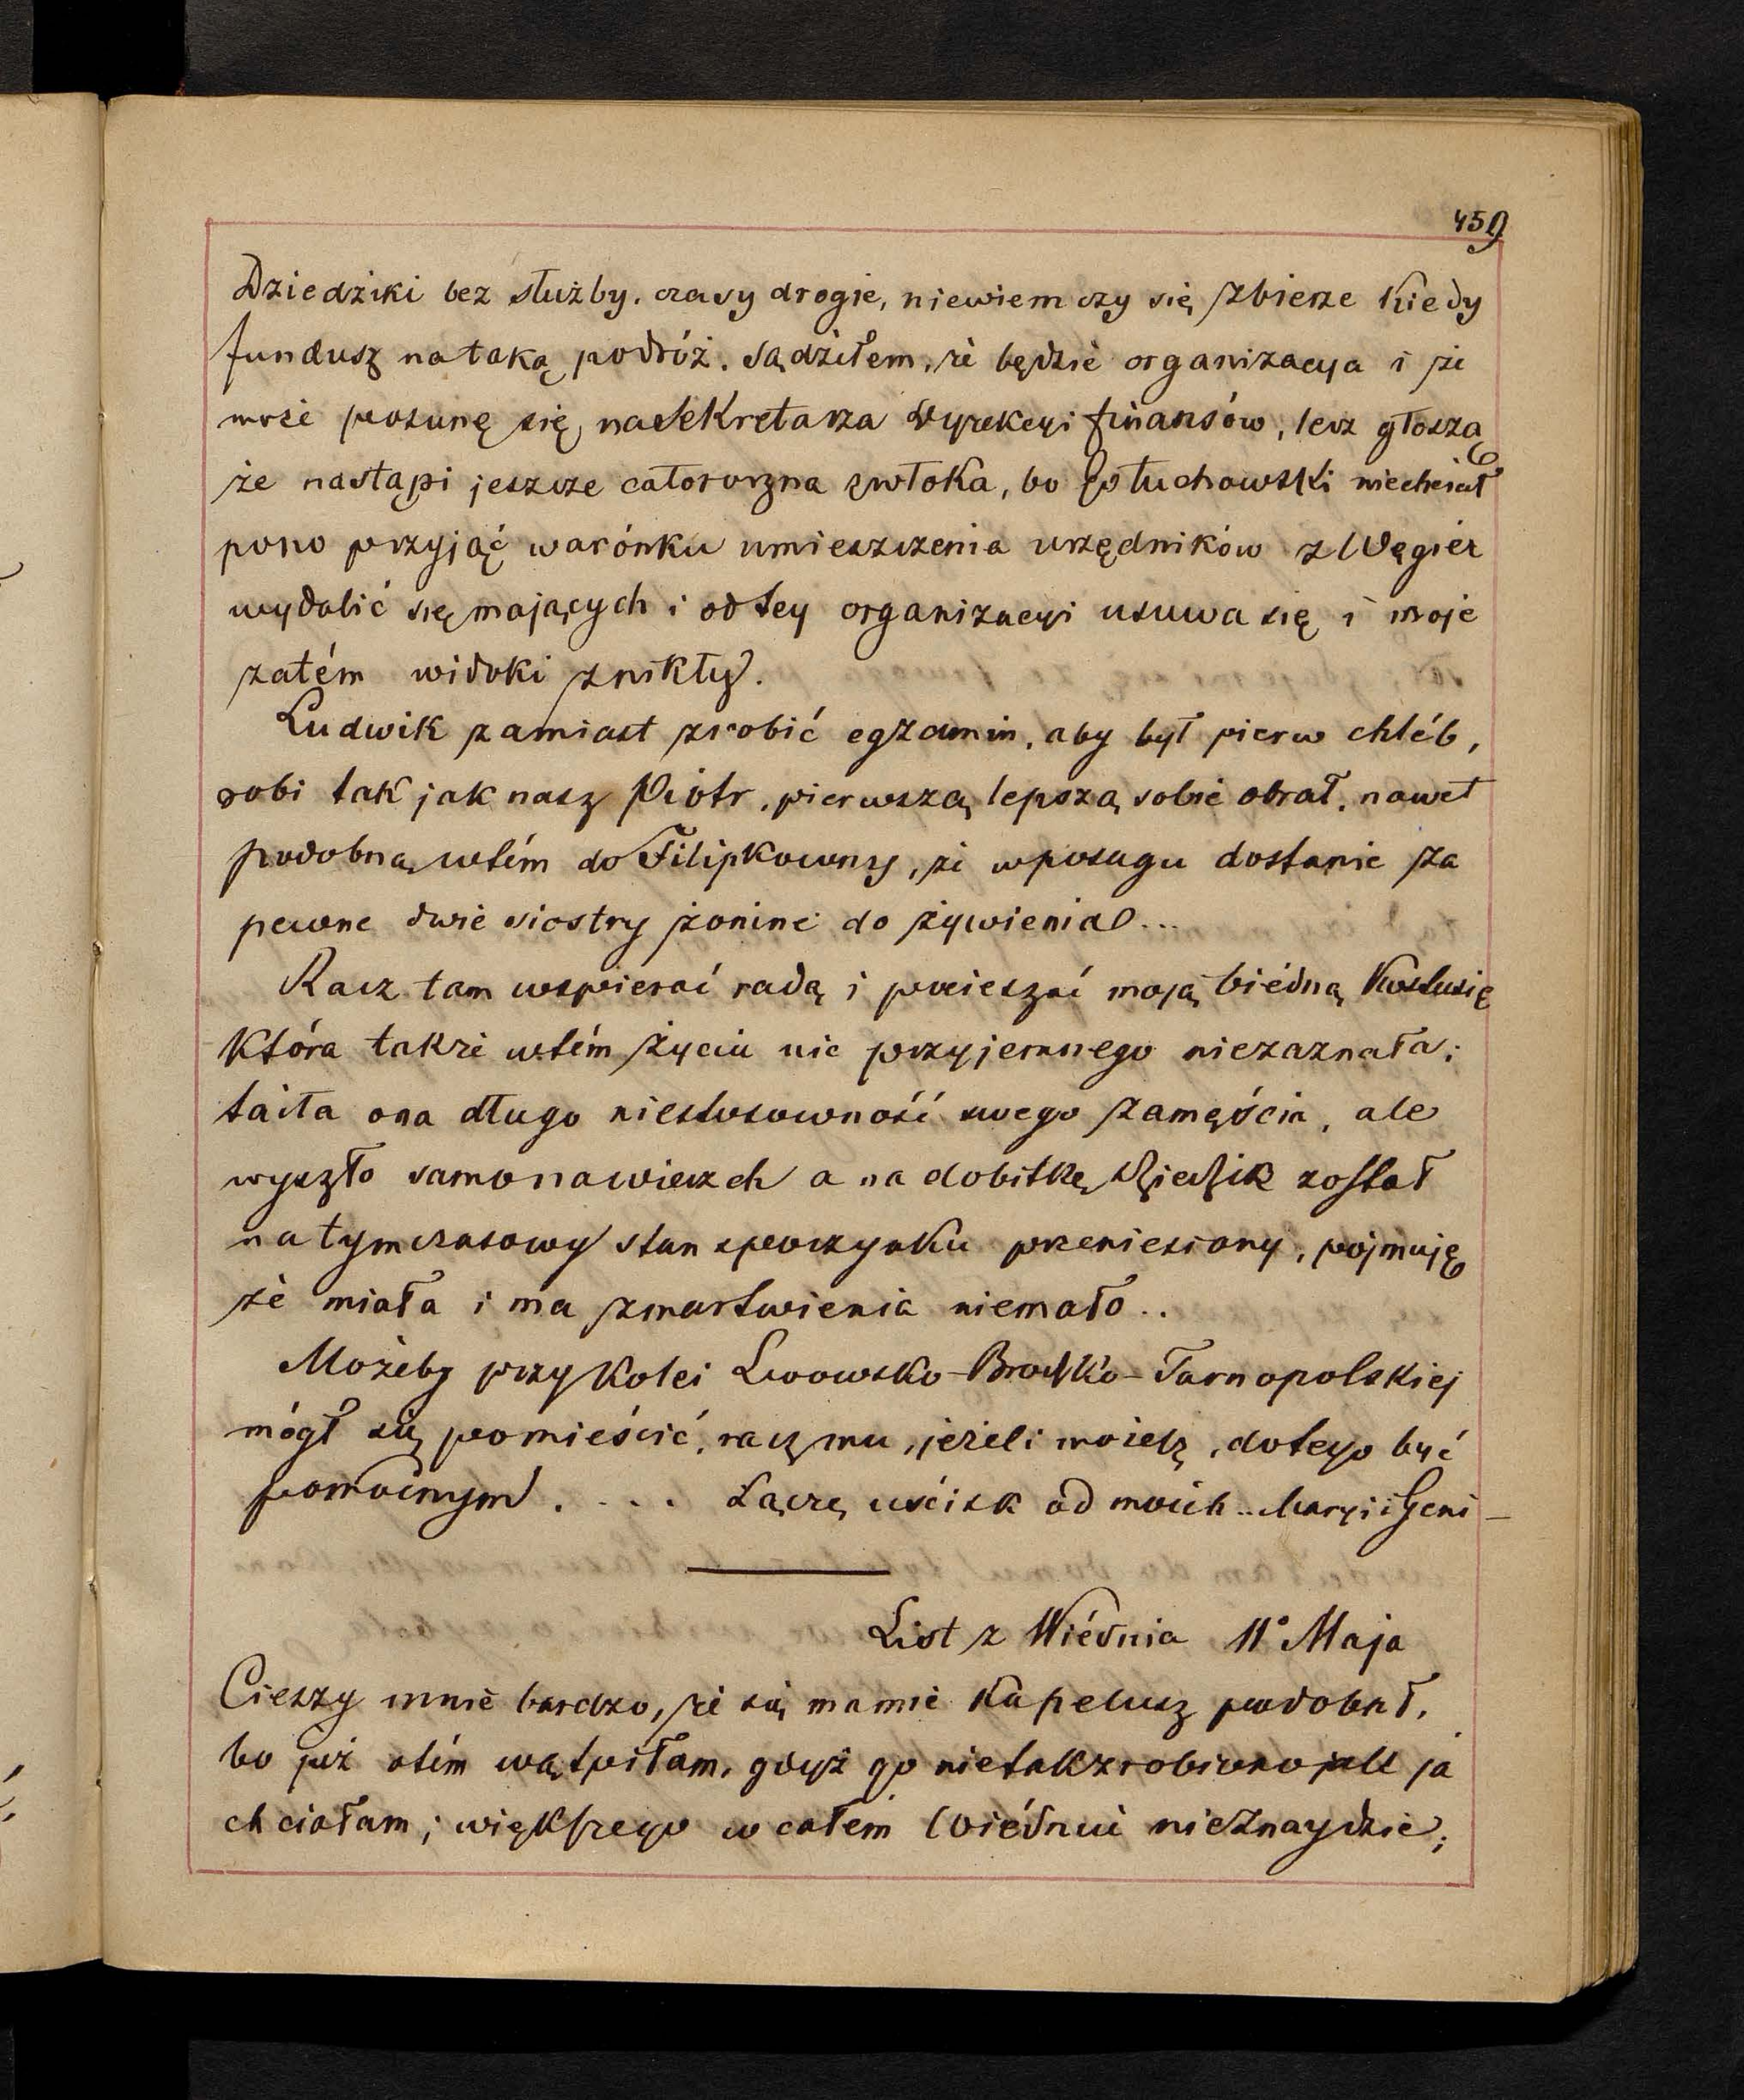 459
Dziedziki bez służby, czasy drogie, niewiem czy się zbierze kiedy
fundusz na taką podróż. Sądziłem, że będzie organizacya i że
może posunę się na Sekretarza Dyrekcyi finansów, lecz głoszą
że nastąpi jeszcze całoroczna zwłoka, bo Gołuchowski niechciał
pono przyjąć warónku umieszczenia urzędników z Węgier
wydalić się mających i od tey organizacyi usuwa się i moje
zatém widoki znikły.
Ludwik zamiast zrobić egzamin, aby był pierw chléb,
robi tak jak nasz Piotr, pierwszą lepszą sobie obrał, nawet
podobną wtém do Filipkowny, że wposagu dostanie za
pewne dwie siostry żonine do żywienia...
Racz tam wspierać radą i pocieszać moją biédną Kostusię
która także wtém życiu nic przyjemnego niezaznała;
taiła ona długo niestosowność swego zamęścia, ale
wyszło samo nawierzch a na dobitkę Dziedzik został
na tymczasowy stan spoczynku przeniesiony, pojmuję
że miała i ma zmartwienia niemało..
Możeby przy kolei Lwowsko-Brodzko-Tarnopolskiej
mógł się pomieścić, racz mu, jeżeli możesz, dotego być
pomocnym. ... Łączę uścisk od moich.. Maryi i Geni-
List z Wiédnia 11º Maja
Cieszy mnie bardzo, że się mamie kapelusz podobał,
bo już otém wątpiłam, gdyż go nietak zrobiono jak ja
chciałam; większego w całem Wiédniu nieznaydzie;